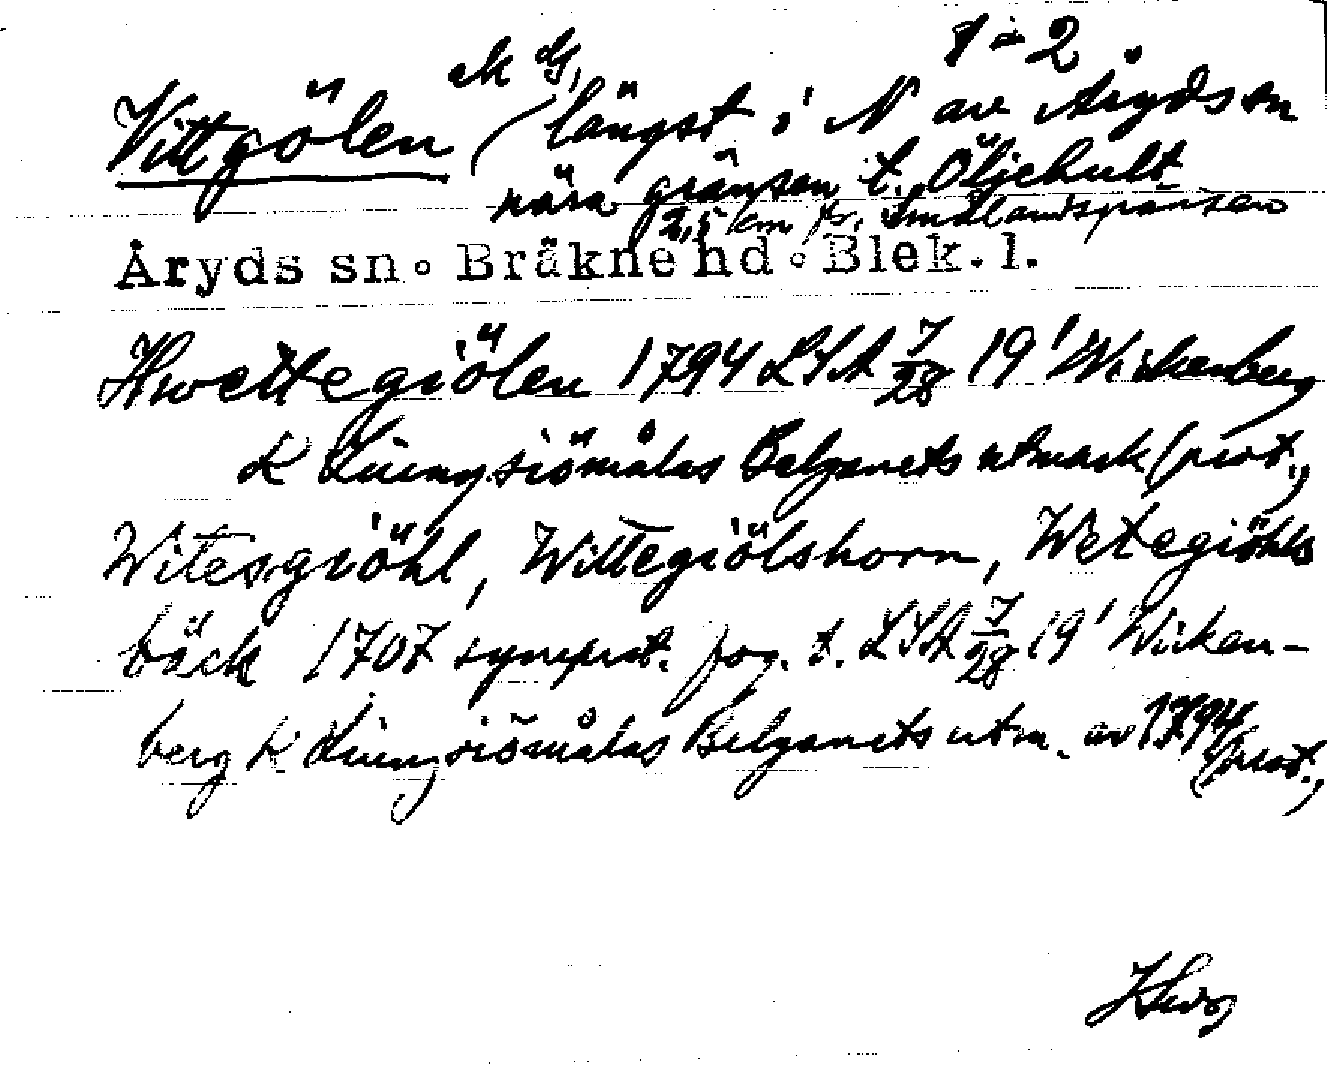 1-2
Vittgölen (längst i N av Åryds sn
nära gränsen t. Öljehult
2,5 km fr. Smålandsgränsen
Åryds sn. Bräkne hd. Blek. l.
Hwettegiölen 1794 LSA 7/28 19' Wirkenberg
K Liungsiömålas Belganets utmark (prot.)
Witesgiöhl, Wittegiölshorn, Wetegiöhls
bäck 1707 syneprot. fog. t. LSA 7/28 19' Wirken-
berg K Liungsiömålas Belganets utm. av 1794
(prot.)